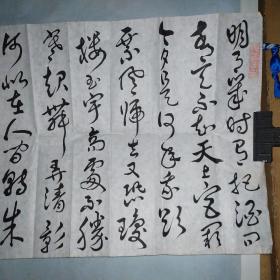 明月几时有把酒问
青天不知天上宫阙
今夕是何年我欲
乘风归去又恐琼
楼玉宇高处不胜
寒起舞弄清影
何似在人间转朱